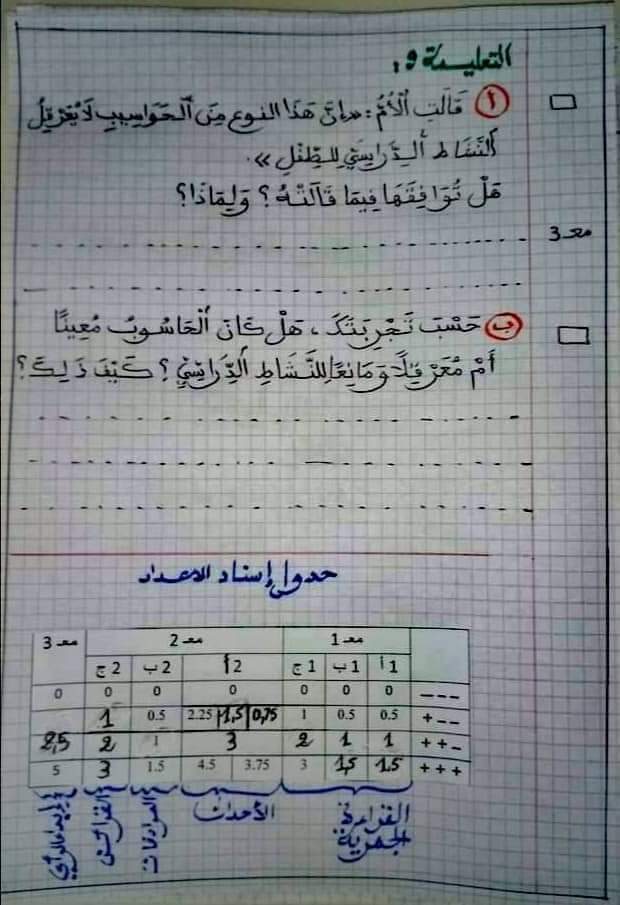 التعليمة 9:
أ قَالَتِ الْأُمُّ: «إنَّ هَذَا النوع مِنَ الْحَوَاسِيبِ لَا يُعَرْقِلُ
النَّشَاطَ الدِّرَاسِيَّ لِلطِّفْلِ».
هَلْ تُوَافِقُهَا فِيمَا قَالَتْهُ؟ وَلِمَاذَا؟
معـ 3
ب حَسْبَ تَجْرِبَتِكَ، هَلْ كَانَ الْحَاسُوبُ مُعِينًا
أَمْ مُعَرْقِلًا وَمَانِعًا لِلنَّشَاطِ الدِّرَاسِيِّ؟ كَيْفَ ذَلِكَ؟
جدول إسناد الأعداد
معـ 1 معـ 2 معـ 3
1 أ 1 ب 1 ج 2 أ 2 ب 2 ج
--- 0 0 0 0 0 0 0
+-- 0.5 0.5 1 0,75 1,5 2.25 0.5 1
++- 1 1 2 3 1 2 2,5
+++ 1.5 1,5 3 3.75 4.5 1.5 3 5
القراءة الجهرية
الأحداث
القرائن